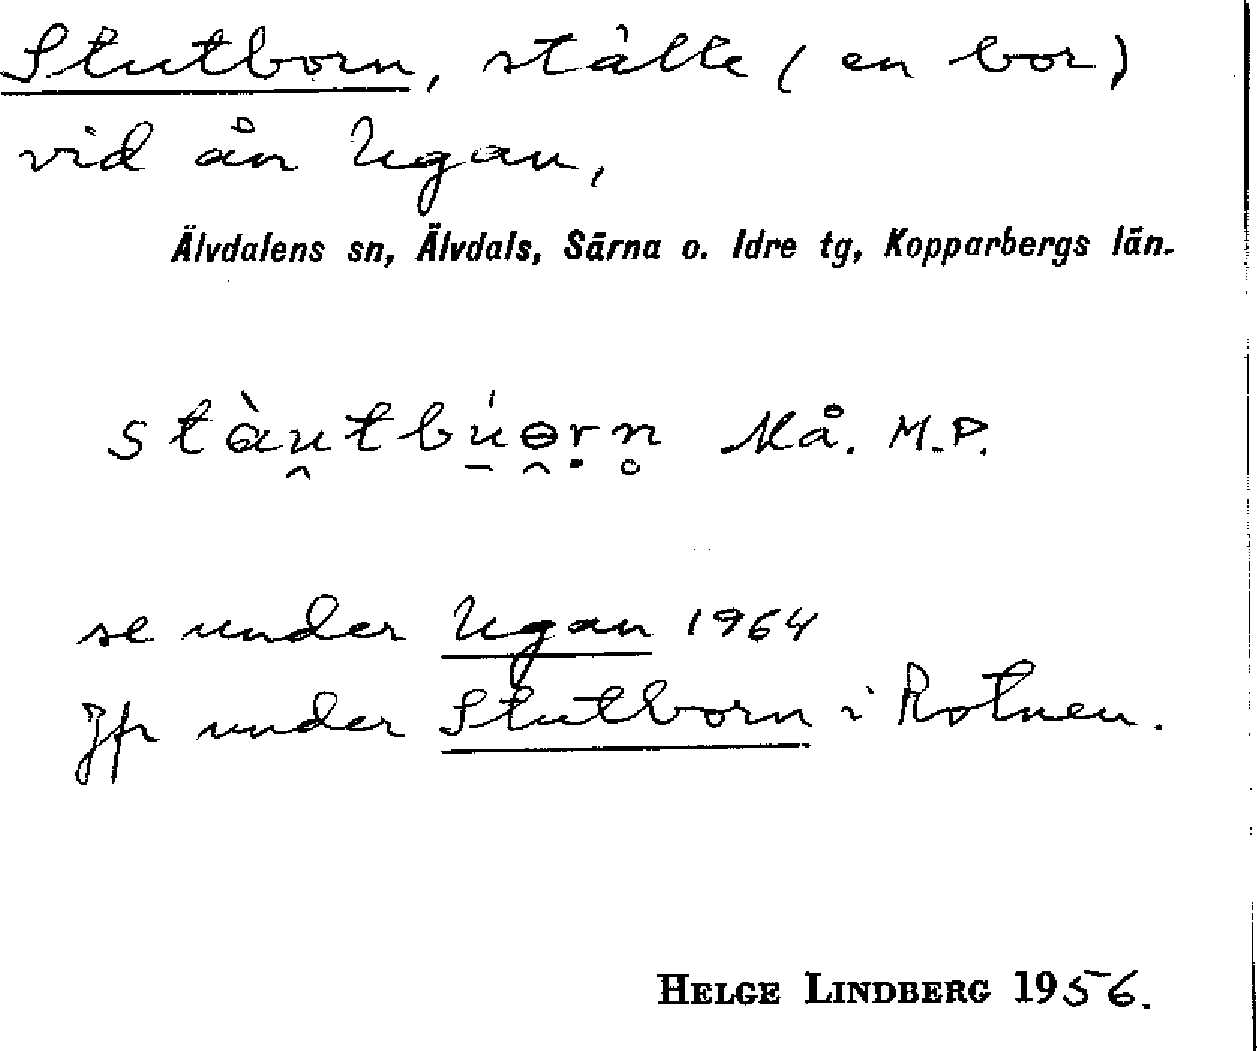 Stutborn, ställe (en bor)
vid ån Ugan,
Älvdalens sn, Älvdals, Särna o. Idre tg, Kopparbergs län.
stàu̯tbú̱ɵ̯ṛn̥ Må. M.P.
se under Ugan 1964
Jfr under Stutborn i Rotnen.
HELGE LINDBERG 1956.